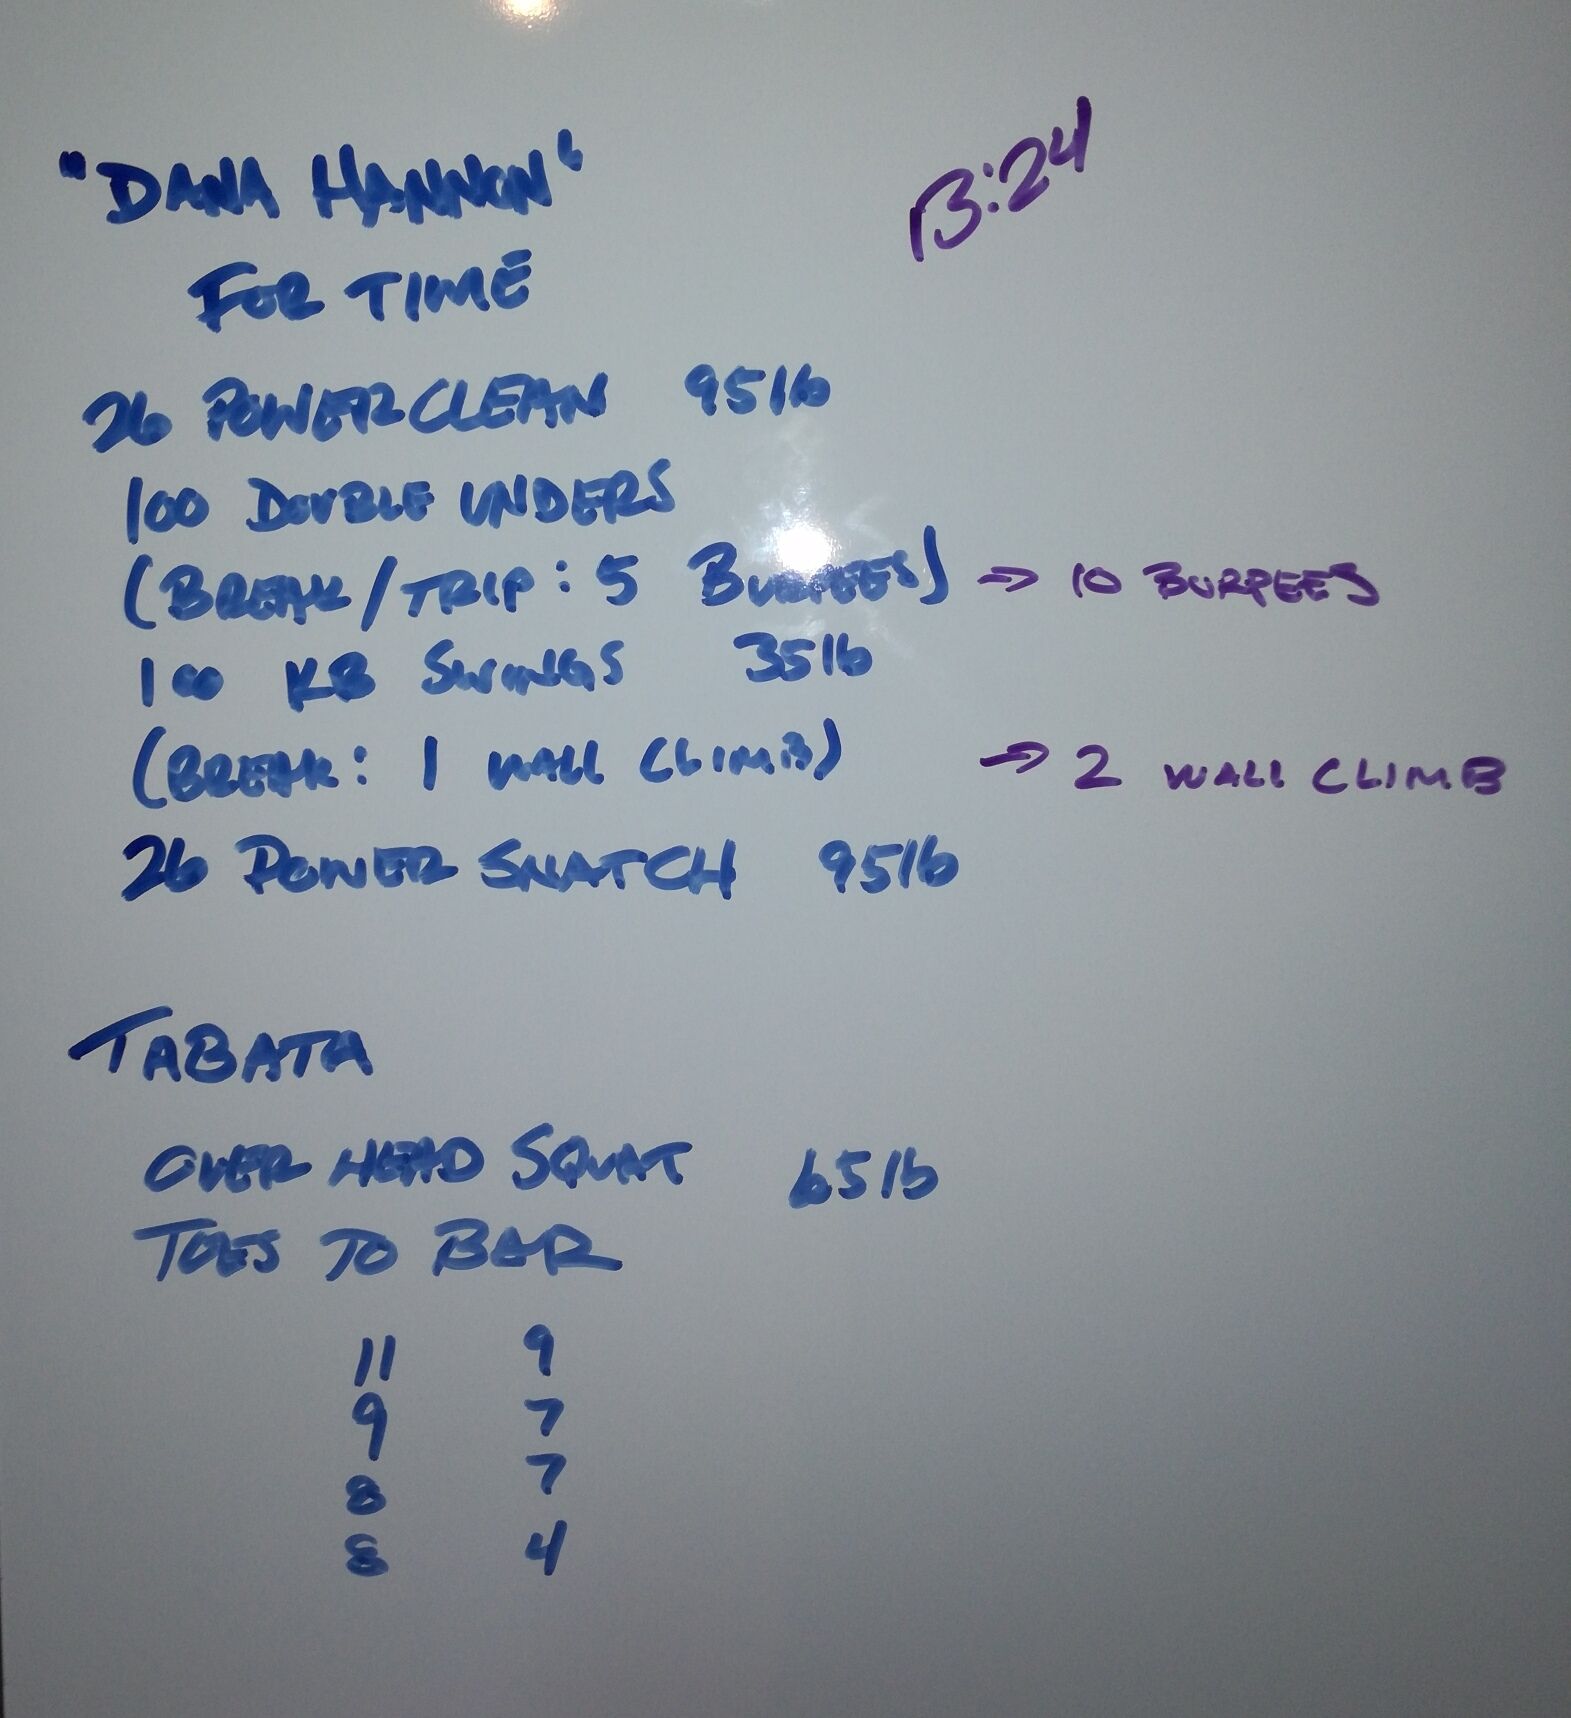 "DANA HANNON"
13:24
FOR TIME
26 POWER CLEAN 95lb
100 DOUBLE UNDERS
(BREAK/TRIP: 5 BURPEES) → 10 BURPEES
100 KB SWINGS 35lb
(BREAK: 1 WALL CLIMB) → 2 WALL CLIMB
26 POWER SNATCH 95lb
TABATA
OVER HEAD SQUAT 65lb
TOES TO BAR
11 9
9 7
8 7
8 4